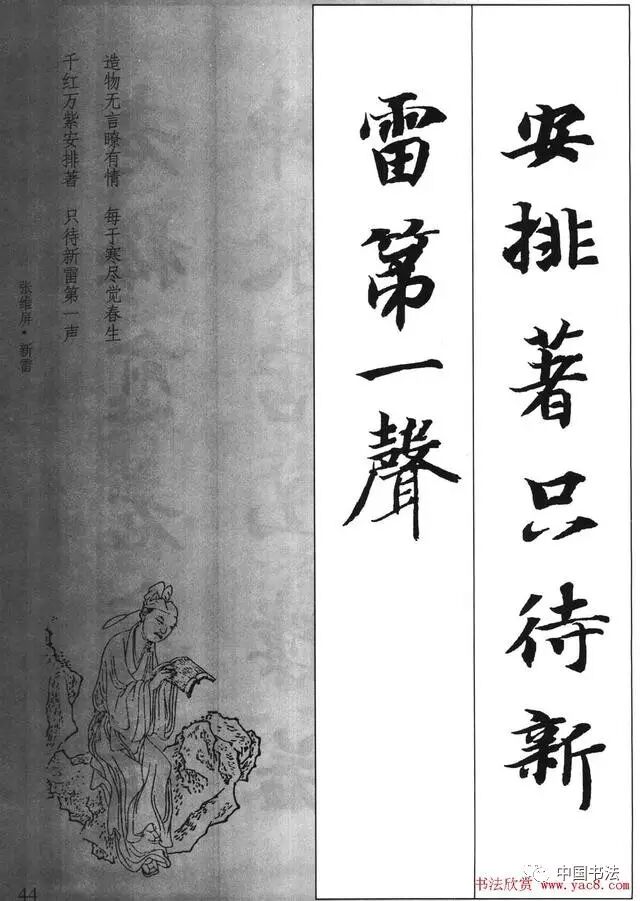 安排著只待新
雷第一聲
造物无言暸有情 每于寒尽觉春生
千红万紫安排著 只待新雷第一声
张维屏·新雷
44
中国书法
书法欣赏 www.yac8.com